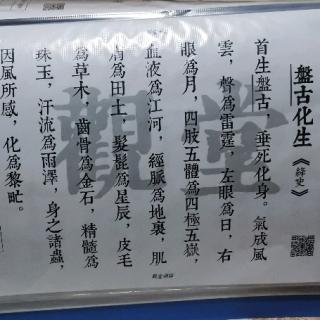 盤古化生《繹史》
首生盤古，垂死化身。氣成風
雲，聲爲雷霆，左眼爲日，右
眼爲月，四肢五體爲四極五嶽，
血液爲江河，經脈爲地裏，肌
肉爲田土，髮髭爲星辰，皮毛
爲草木，齒骨爲金石，精髓爲
珠玉，汗流爲雨澤，身之諸蟲，
因風所感，化爲黎甿。
觀堂